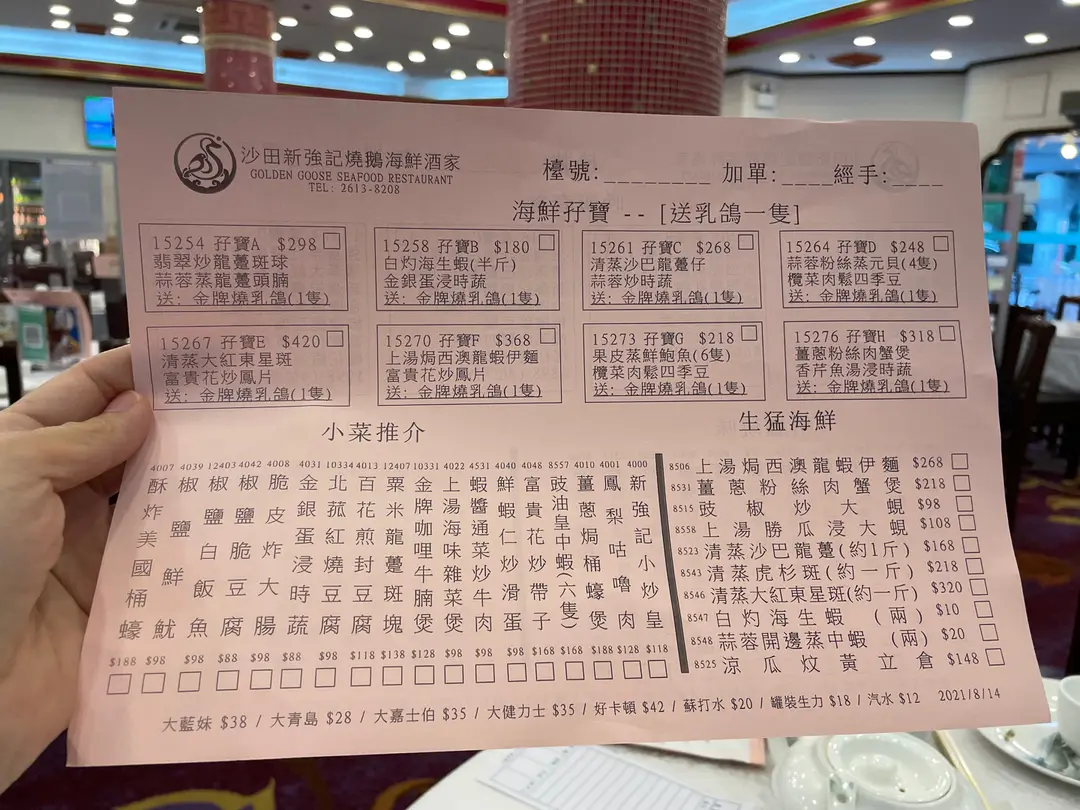 沙田新強記燒鵝海鮮酒家
GOLDEN GOOSE SEAFOOD RESTAURANT
TEL: 2613-8208
檯號:_________ 加單:____經手:____
海鮮孖寶 -- [送乳鴿一隻]
15254 孖寶A $298
翡翠炒龍躉斑球
蒜蓉蒸龍躉頭腩
送: 金牌燒乳鴿(1隻)
15258 孖寶B $180
白灼海生蝦(半斤)
金銀蛋浸時蔬
送: 金牌燒乳鴿(1隻)
15261 孖寶C $268
清蒸沙巴龍躉仔
蒜蓉炒時蔬
送: 金牌燒乳鴿(1隻)
15264 孖寶D $248
蒜蓉粉絲蒸元貝(4隻)
欖菜肉鬆四季豆
送: 金牌燒乳鴿(1隻)
15267 孖寶E $420
清蒸大紅東星斑
富貴花炒鳳片
送: 金牌燒乳鴿(1隻)
15270 孖寶F $368
上湯焗西澳龍蝦伊麵
富貴花炒鳳片
送: 金牌燒乳鴿(1隻)
15273 孖寶G $218
果皮蒸鮮鮑魚(6隻)
欖菜肉鬆四季豆
送: 金牌燒乳鴿(1隻)
15276 孖寶H $318
薑蔥粉絲肉蟹煲
香芹魚湯浸時蔬
送: 金牌燒乳鴿(1隻)
小菜推介
4007 4039 12403 4042 4008 4031 10334 4013 12407 10331 4022 4531 4040 4048 8557 4010 4001 4000
酥炸美國桶蠔
椒鹽鮮魷
椒鹽白飯魚
椒鹽脆豆腐
脆皮炸大腸
金銀蛋浸時蔬
北菰紅燒豆腐
百花煎封豆腐
粟米龍躉斑塊
金牌咖哩牛腩煲
上湯海味雜菜煲
蝦醬通菜炒牛肉
鮮蝦仁炒滑蛋
富貴花炒帶子
豉油皇中蝦(六隻)
薑蔥焗桶蠔煲
鳳梨咕嚕肉
新強記小炒皇
$188 $98 $98 $88 $98 $88 $98 $118 $138 $128 $98 $98 $98 $168 $168 $188 $128 $118
生猛海鮮
8506 上湯焗西澳龍蝦伊麵 $268
8531 薑蔥粉絲肉蟹煲 $218
8515 豉椒炒大蜆 $98
8558 上湯勝瓜浸大蜆 $108
8523 清蒸沙巴龍躉(約1斤) $168
8543 清蒸虎杉斑(約一斤) $218
8546 清蒸大紅東星斑(約一斤) $320
8547 白灼海生蝦 (兩) $10
8548 蒜蓉開邊蒸中蝦 (兩) $20
8525 涼瓜炆黃立倉 $148
大藍妹 $38 / 大青島 $28 / 大嘉士伯 $35 / 大健力士 $35 / 好卡頓 $42 / 蘇打水 $20 / 罐裝生力 $18 / 汽水 $12 2021/8/14